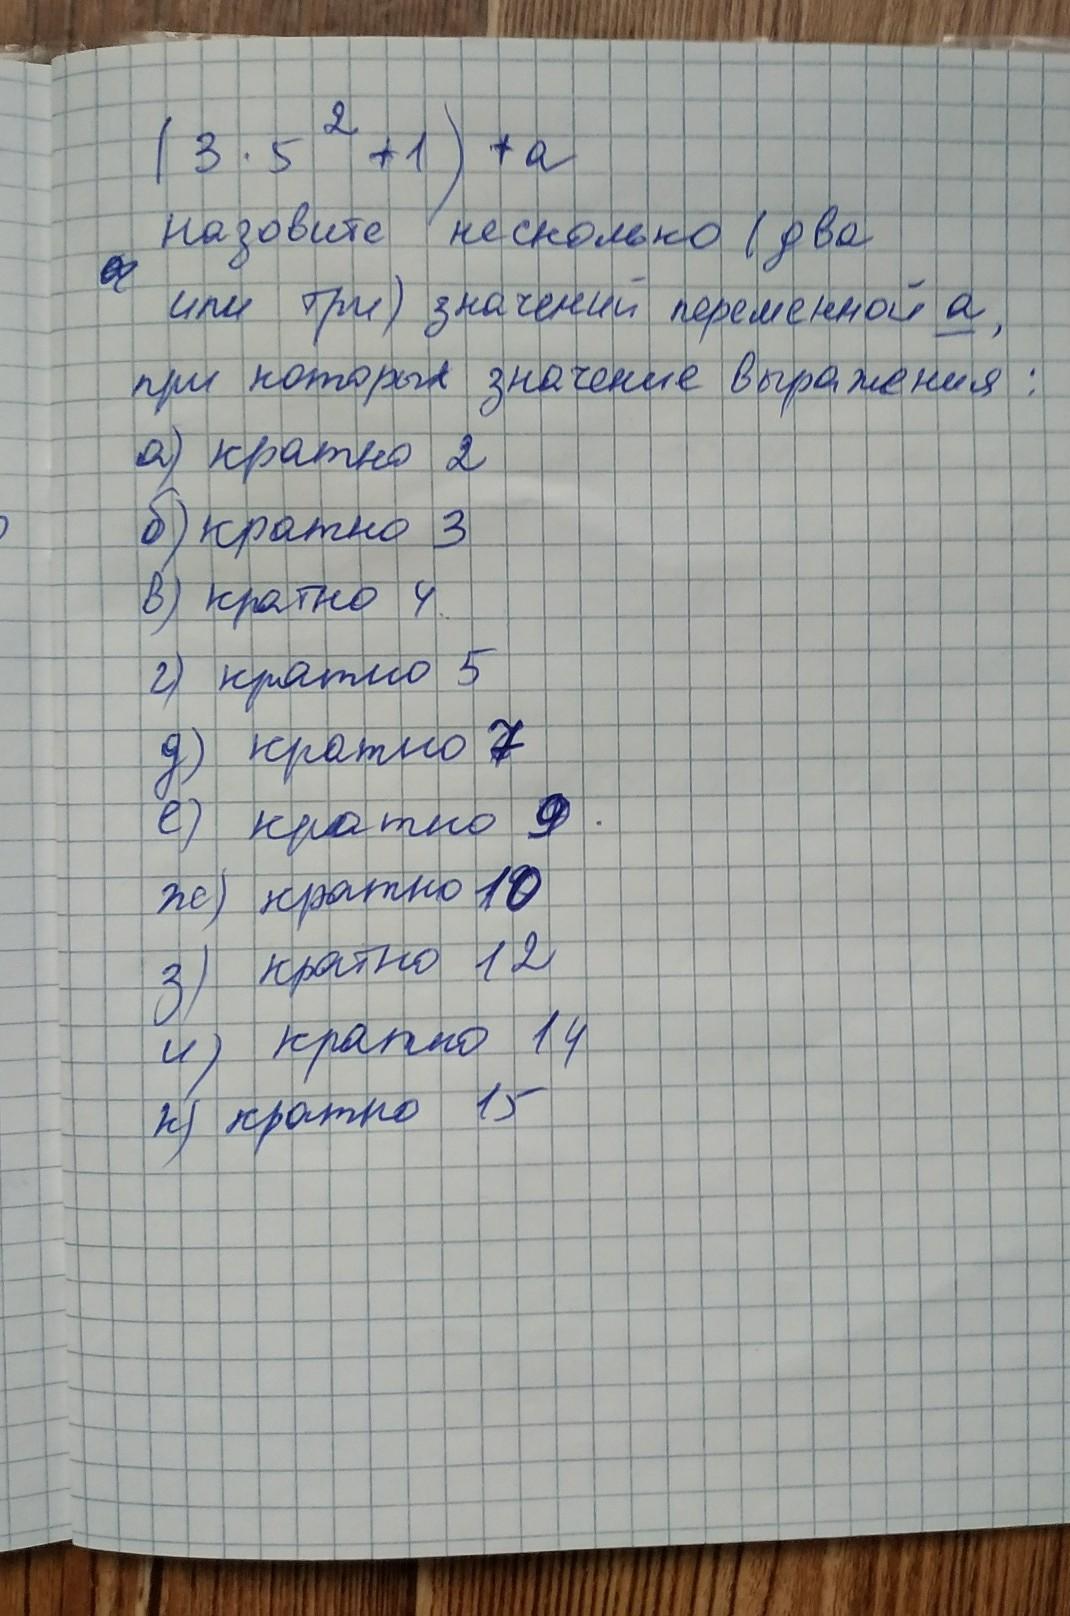 (3·5²+1)+а
назовите несколько (два
или три) значений переменной а,
при которых значение выражения:
а) кратно 2
б) кратно 3
в) кратно 4.
г) кратно 5
д) кратно 7
е) кратно 9.
ж) кратно 10
з) кратно 12
и) кратно 14
к) кратно 15